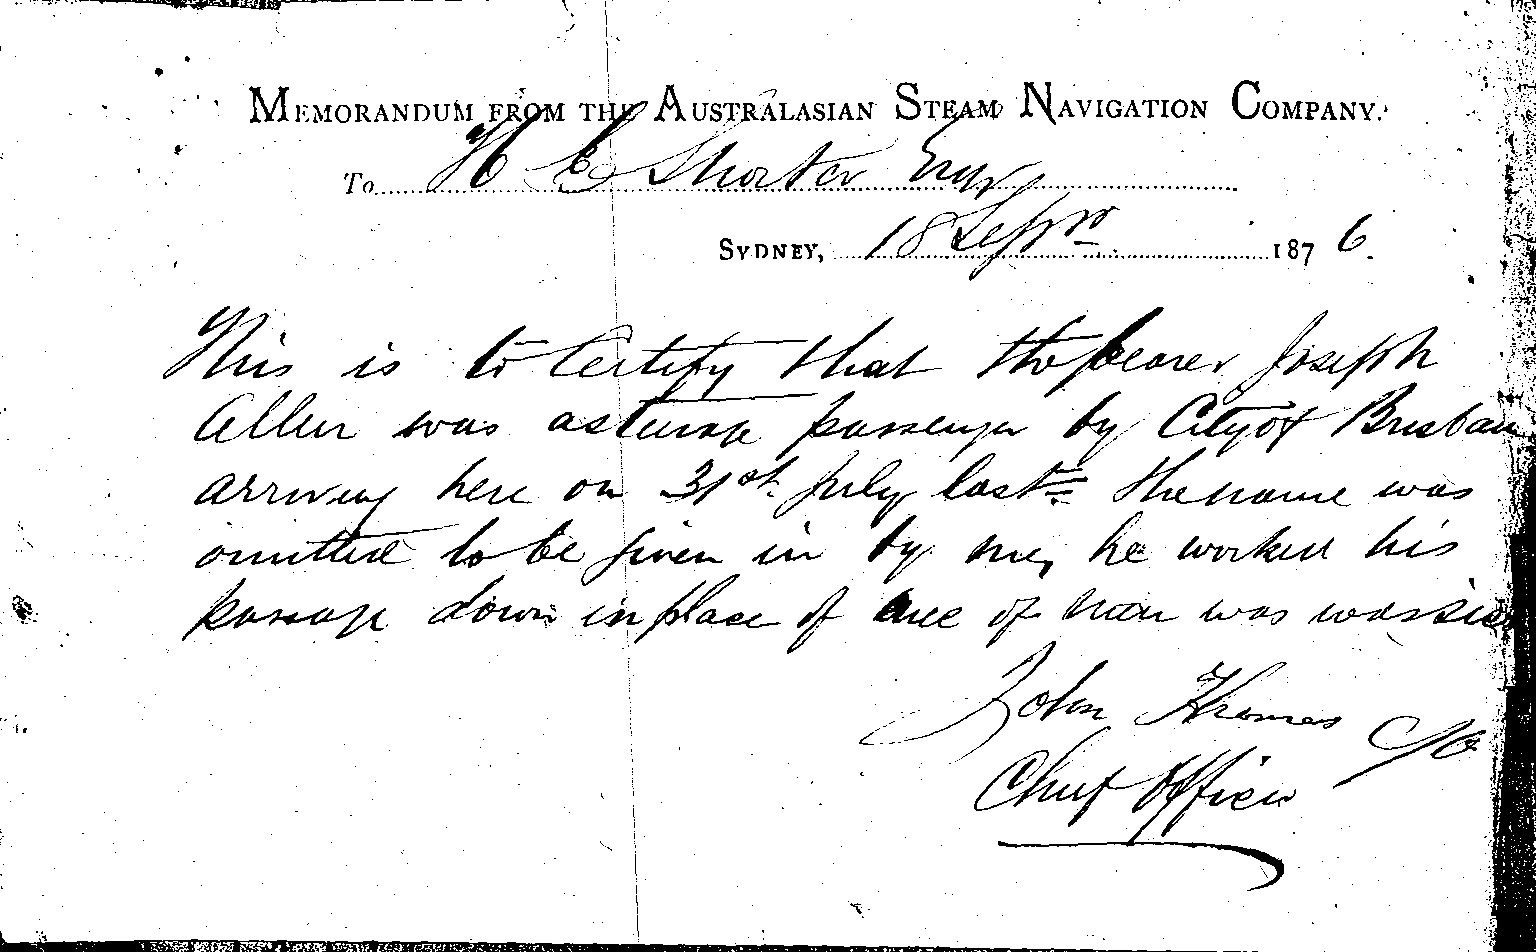 MEMORANDUM FROM THE AUSTRALASIAN STEAM NAVIGATION COMPANY.
To H C Shorter Esqr
SYDNEY, 18 Septr 1876.
This is to Certify that the bearer Joseph
Allen was a steerage passenger by City of Brisban
arriving here on 31st July last The name was
omitted to be given in by me, he worked his
passage down in place of one of men was was sick
John Thomas
Chief Officer